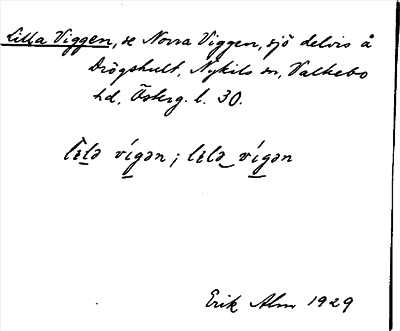 Lilla Viggen, se Norra Viggen, sjö delvis å
Drögshult, Nykils sn, Valkebo
hd, Österg. l. 30.
lɪ̄lə vígən ; lɪlə‿vígən
Erik Alm 1929